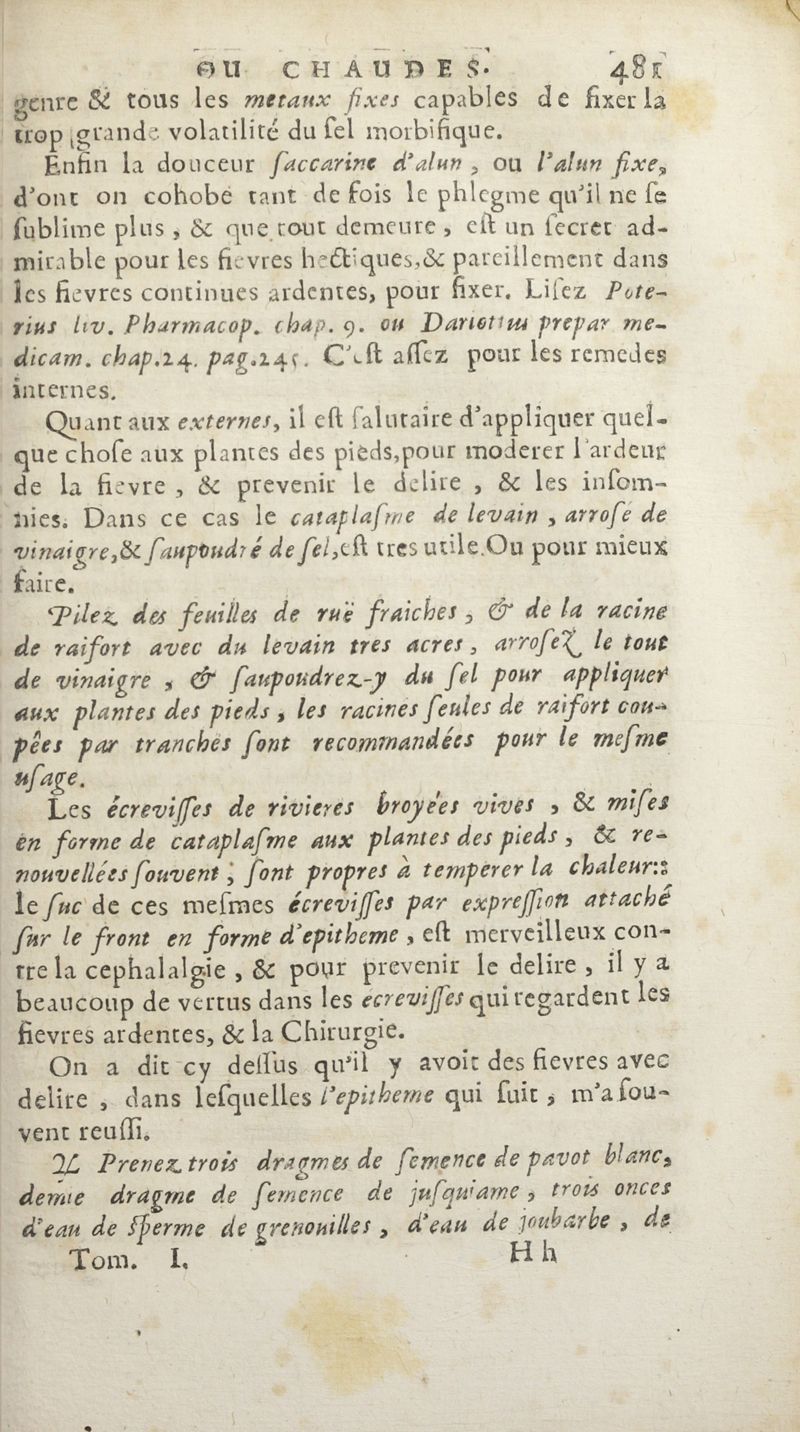 OU CHAUDES. 481
genre & tous les metaux fixes capables de fixer la
trop grande volatilité du ſel morbifique.
Enfin la douceur ſaccarine d'alun, ou l'alun fixe,
d'ont on cohobe tant de fois le phlegme qu'il ne ſe
ſublime plus, & que tout demeure, eſt un ſecret ad-
mirable pour les fievres hectiques, & pareillement dans
les fievres continues ardentes, pour fixer. Liſez Pote-
rius liv. Pharmacop. chap. 9. ou Dariottus prepar me-
dicam. chap. 24. pag. 245. C'eſt aſſez pour les remedes
internes.
Quant aux externes, il eſt ſalutaire d'appliquer quel-
que choſe aux plantes des pieds, pour moderer l'ardeur
de la fievre, & prevenir le delire, & les inſom-
nies. Dans ce cas le cataplaſme de levain, arroſé de
vinaigre, & ſaupoudré de ſel, eſt tres utile. Ou pour mieux
faire.
Pilez des feuilles de ruë fraiches, & de la racine
de raifort avec du levain tres acres, arroſez le tout
de vinaigre, & ſaupoudrez-y du ſel pour appliquer
aux plantes des pieds, les racines ſeules de raifort cou-
pées par tranches ſont recommandées pour le meſme
uſage.
Les écreviſſes de rivieres broyées vives, & miſes
en forme de cataplaſme aux plantes des pieds, & re-
nouvellées ſouvent; ſont propres à temperer la chaleur:
le ſuc de ces meſmes écreviſſes par expreſſion attaché
ſur le front en forme d'epitheme, eſt merveilleux con-
tre la cephalalgie, & pour prevenir le delire, il y a
beaucoup de vertus dans les ecreviſſes qui regardent les
fievres ardentes, & la Chirurgie.
On a dit cy deſſus qu'il y avoit des fievres avec
delire, dans leſquelles l'epitheme qui ſuit, m'a ſou-
vent reuſſi.
♃ Prenez trois dragmes de ſemence de pavot blanc,
demie dragme de ſemence de juſquiame, trois onces
d'eau de ſperme de grenouilles, d'eau de joubarbe, de
Tom. I. Hh